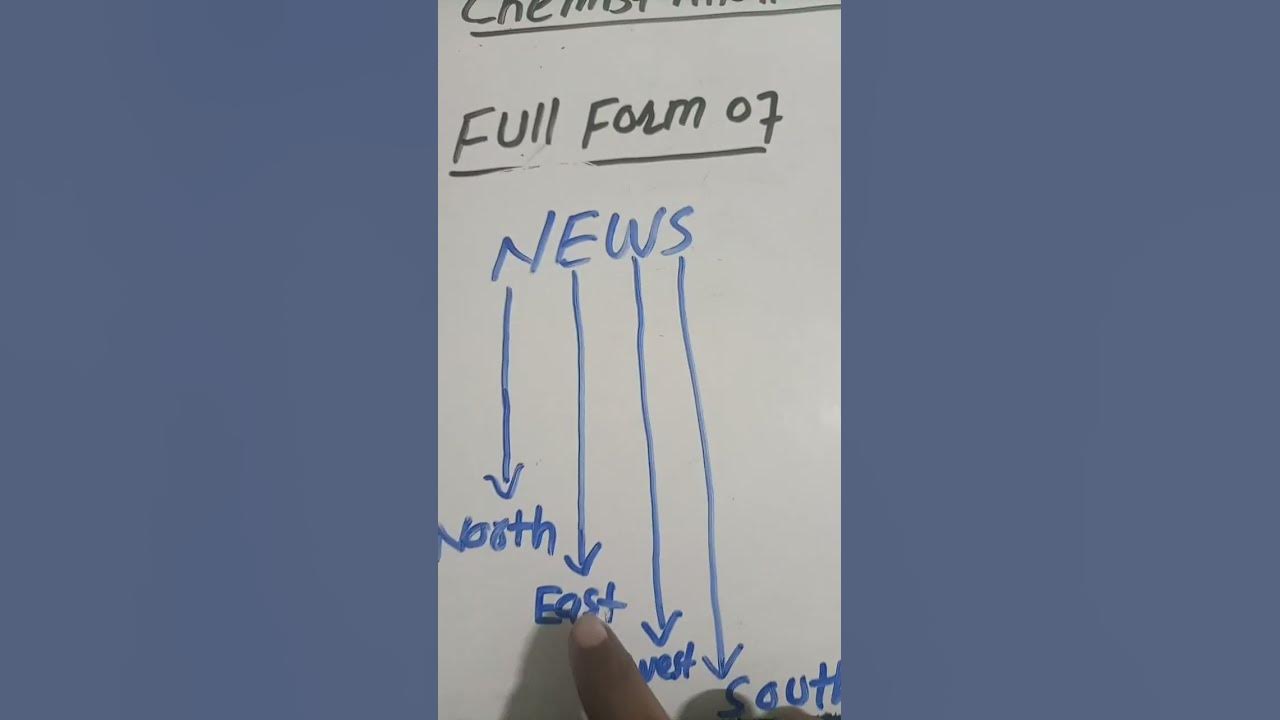 Chemist
Full Form of
NEWS
North
East
west
South